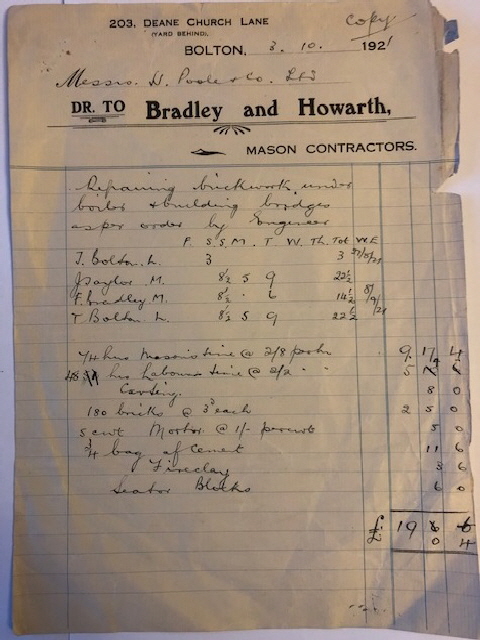 203, DEANE CHURCH LANE
(YARD BEHIND),
copy
BOLTON, 3. 10. 1921
Messrs. H. Poole & Co. Ltd
DR. TO Bradley and Howarth,
MASON CONTRACTORS.
Repairing brickwork under
boiler & building bridges
as per order by Engineer
F. S. S. M. T W. Th. Tot W.E
T. Bolton. L. 3 3 31/8/21
J Saylor M. 8½ 5 9 22½
F. Bradley M. 8½ . 6 14½ 8/9/21
T Bolton. L. 8½ 5 9 22½
74 hrs Masons time @ 2/8 per hr 9 17 4
48 hrs Labours time @ 2/2 " " 5
Carting. 8 0
180 bricks @ 3d each 2 5 0
5 cwt Mortar @ 1/- per cwt 5 0
¾ bag of Cement 11 6
Fireclay 3 6
Seator Blocks 6 0
£ 19 6 6
0 4